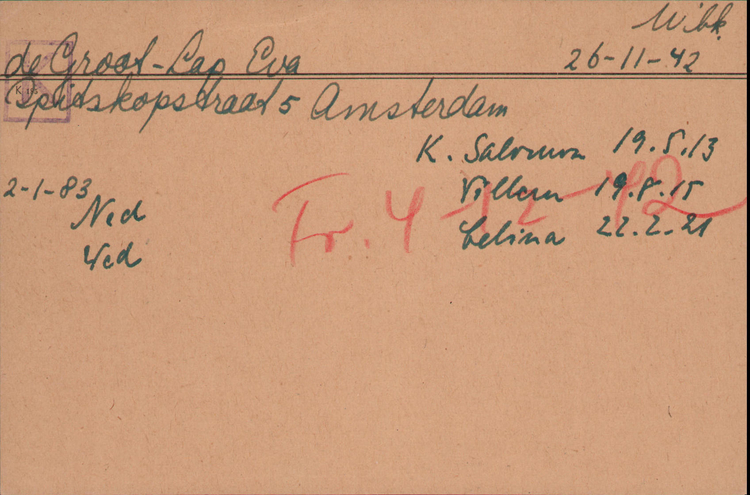 Wbk.
de Groot-Lap Eva 26-11-42
Spitskopstraat 5 Amsterdam
K. Salomon 19.5.13
2-1-83 Willem 19.8.15
Ned Fr. 4-12-42
Celina 22.2.21
Wed